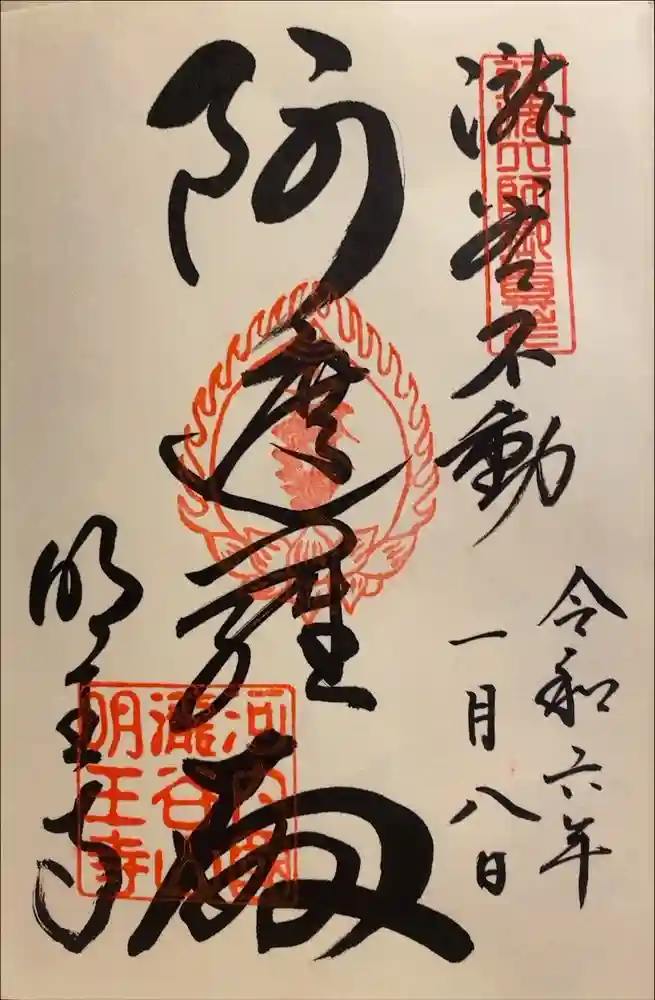 瀧谷不動
令和六年
一月八日
阿遮羅殿
明王寺
河内國
瀧谷山
明王寺